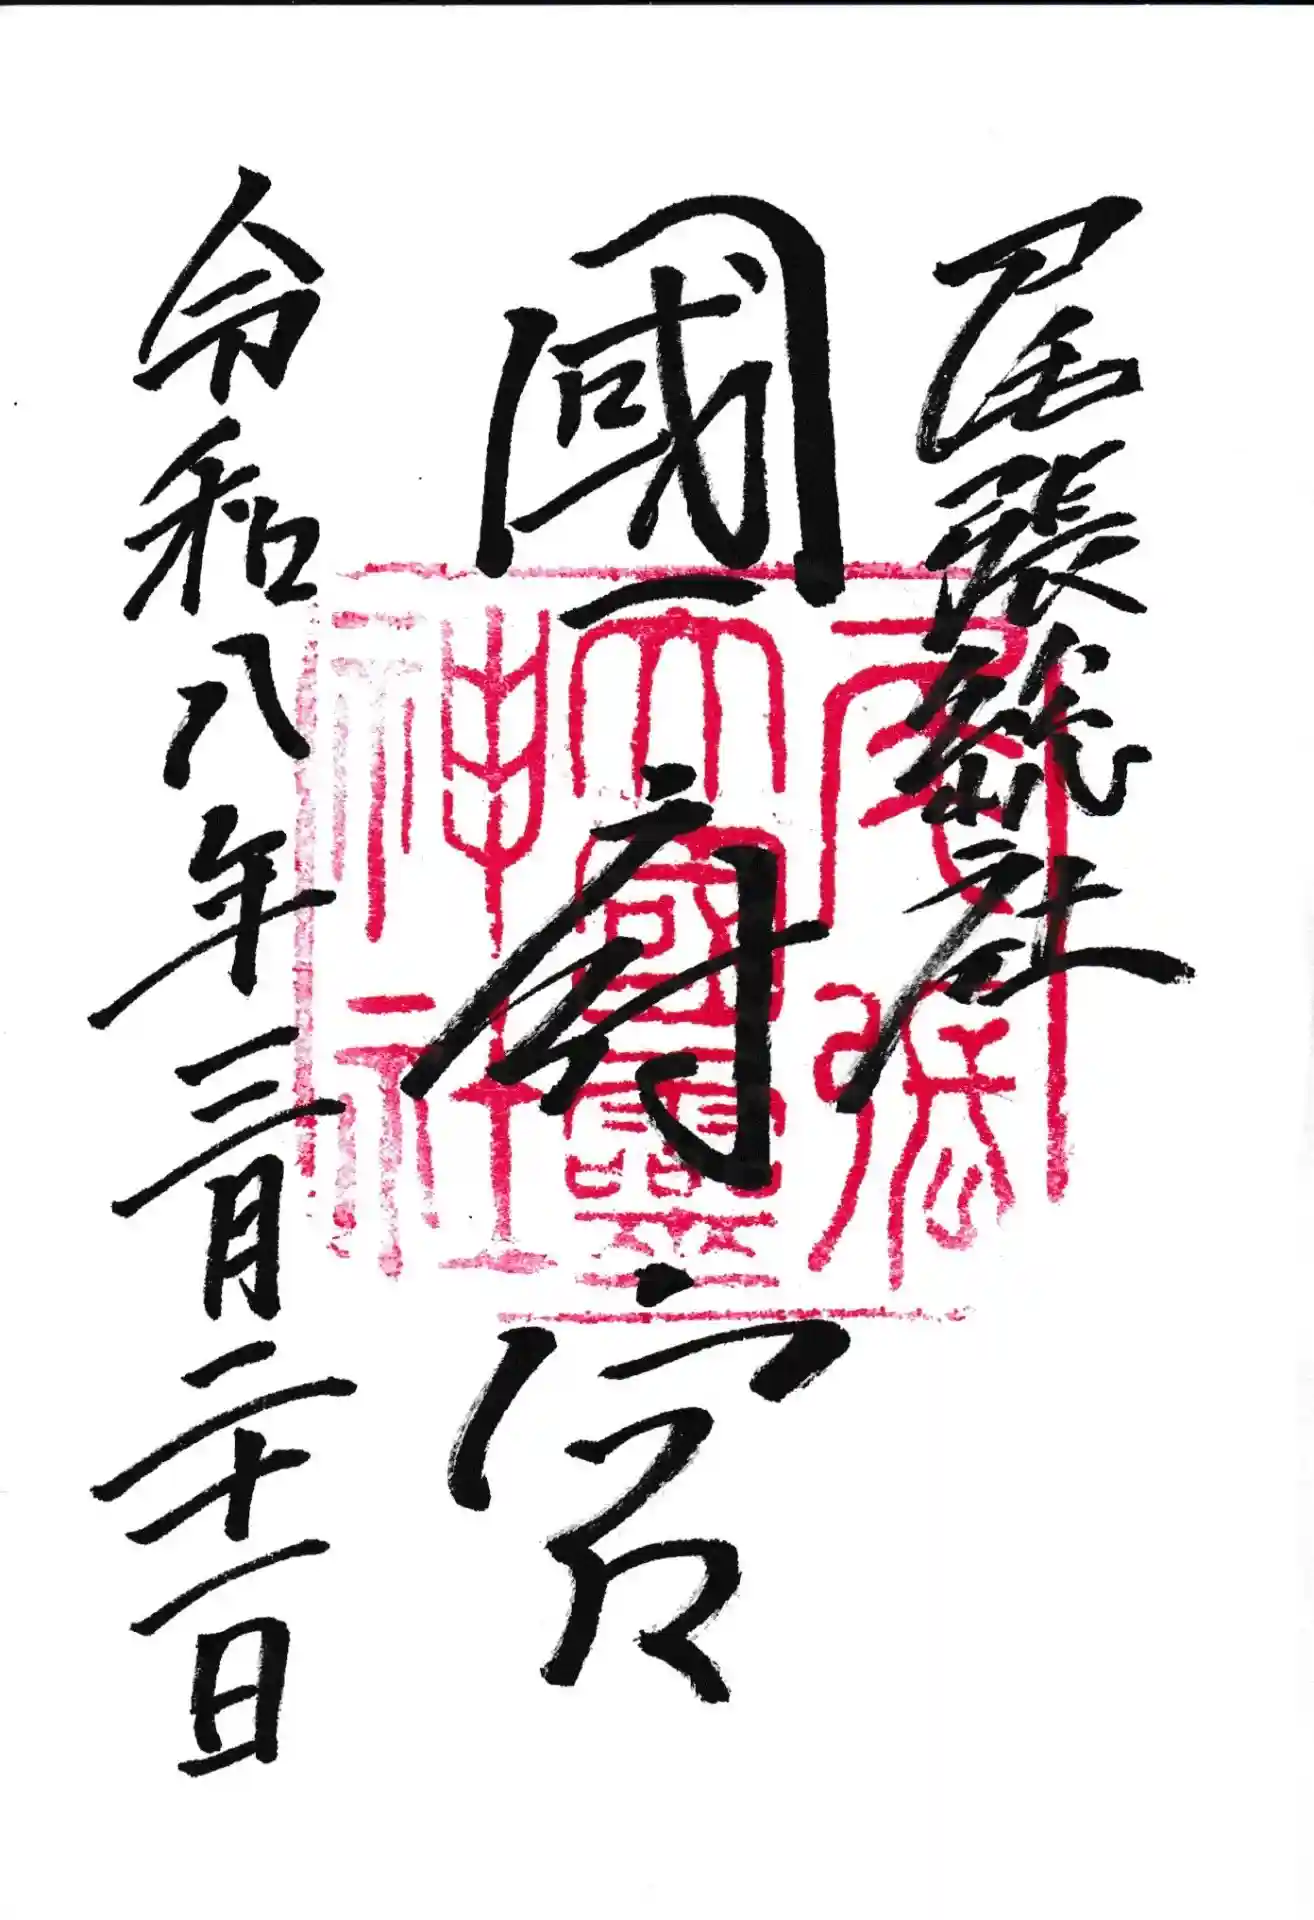 尾張総社
國府宮
令和八年三月二十一日
尾張
大國靈
神社